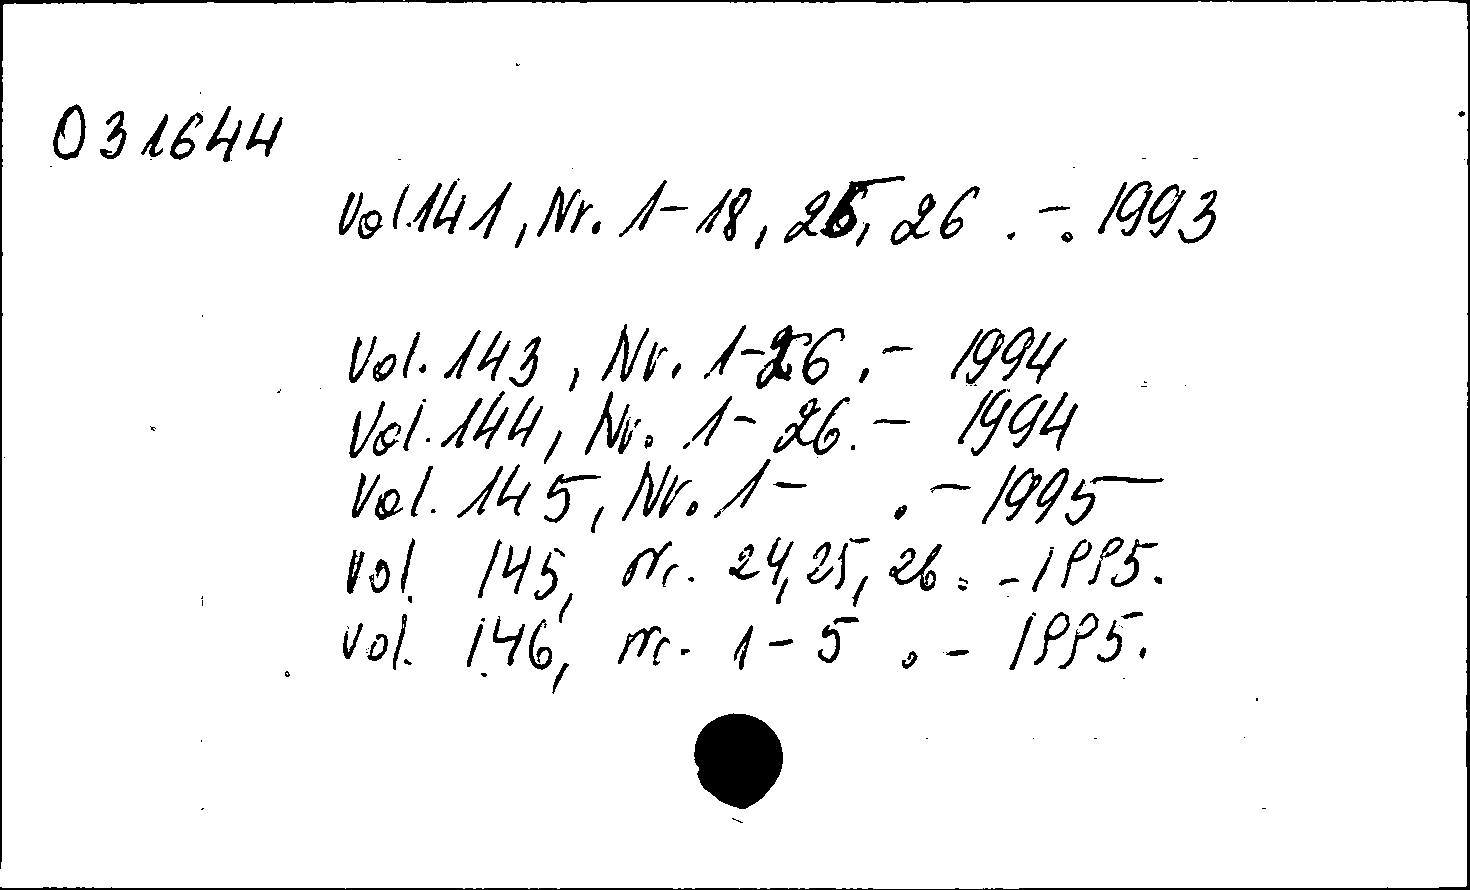 031644
Vol.141, Nr. 1-18, 25, 26 . - . 1993
Vol. 143, Nr. 1-26 . - 1994
Vol. 144, Nr. 1-26. - 1994
Vol. 145, Nr. 1- . - 1995
Vol. 145, nr. 24, 25, 26. - 1995.
Vol. 146, nr. 1-5 . - 1995.